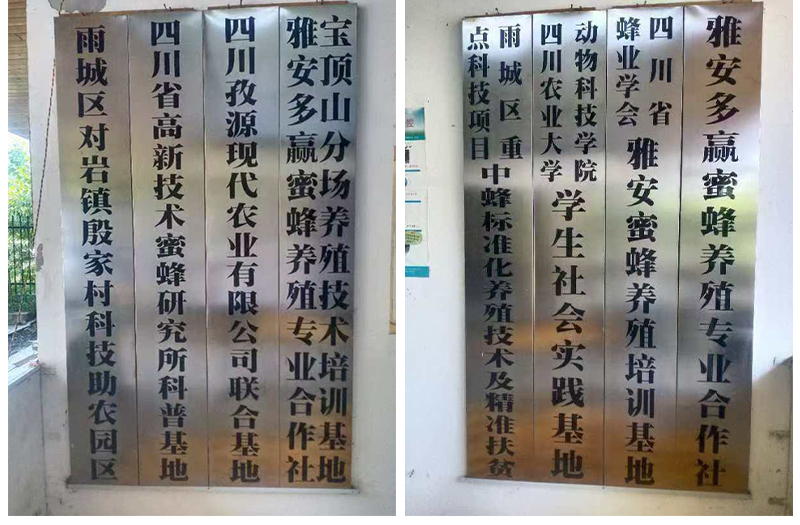 雨城区对岩镇殷家村科技助农园区
四川省高新技术蜜蜂研究所科普基地
四川孜源现代农业有限公司联合基地
雅安多赢蜜蜂养殖专业合作社
宝顶山分场养殖技术培训基地
雨城区重
点科技项目
中蜂标准化养殖技术及精准扶贫
四川农业大学
动物科技学院
学生社会实践基地
四川省
蜂业学会
雅安蜜蜂养殖培训基地
雅安多赢蜜蜂养殖专业合作社